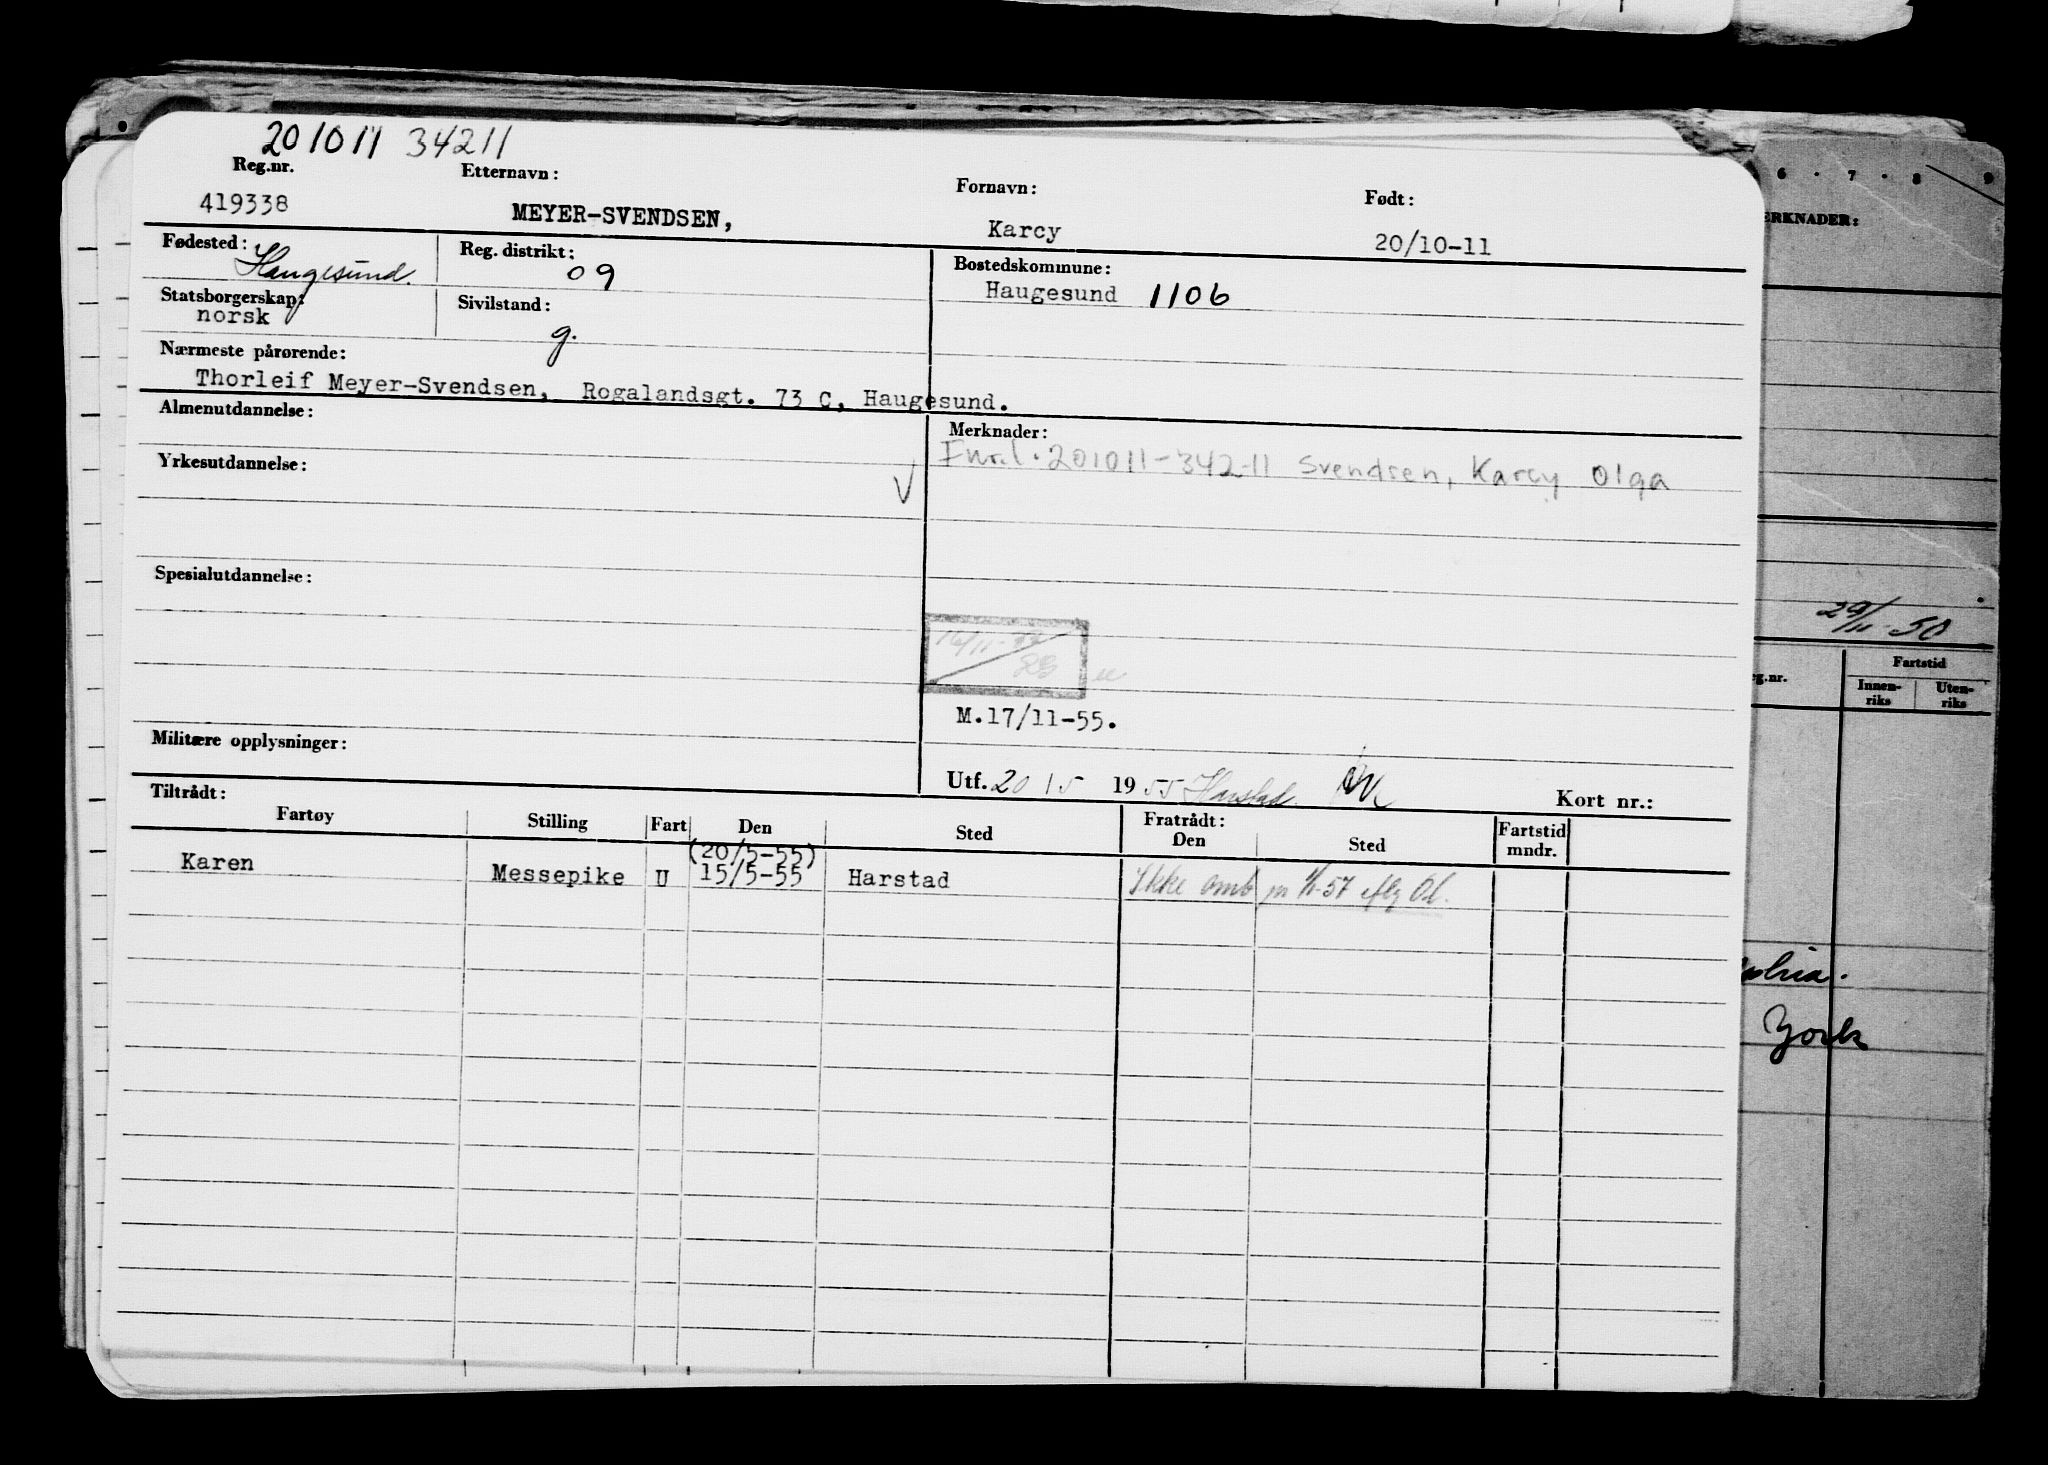 201011 34211
Reg.nr. Etternavn: Fornavn: Født:
419338 MEYER-SVENDSEN, Karcy 20/10-11
Fødested: Haugesund. Reg. distrikt: 09 Bostedskommune:
Haugesund 1106
Statsborgerskap: norsk Sivilstand: g.
Nærmeste pårørende:
Thorleif Meyer-Svendsen, Rogalandsgt. 73 C, Haugesund.
Almenutdannelse: Merknader:
201011-342-11 Svendsen, Karcy Olga
Yrkesutdannelse:
Spesialutdannelse:
M.17/11-55.
Militære opplysninger:
Utf. 20/5 1955 Harstad Kort nr.:
Tiltrådt: Fratrådt:
Fartøy Stilling Fart Den Sted Den Sted Fartstid mndr.
(20/5-55)
Karen Messepike U 15/5-55 Harstad Ikke omb
6 · 7 · 8 9
ERKNADER:
29/11-50
g.nr. Fartstid
Innen-riks Uten-riks
York